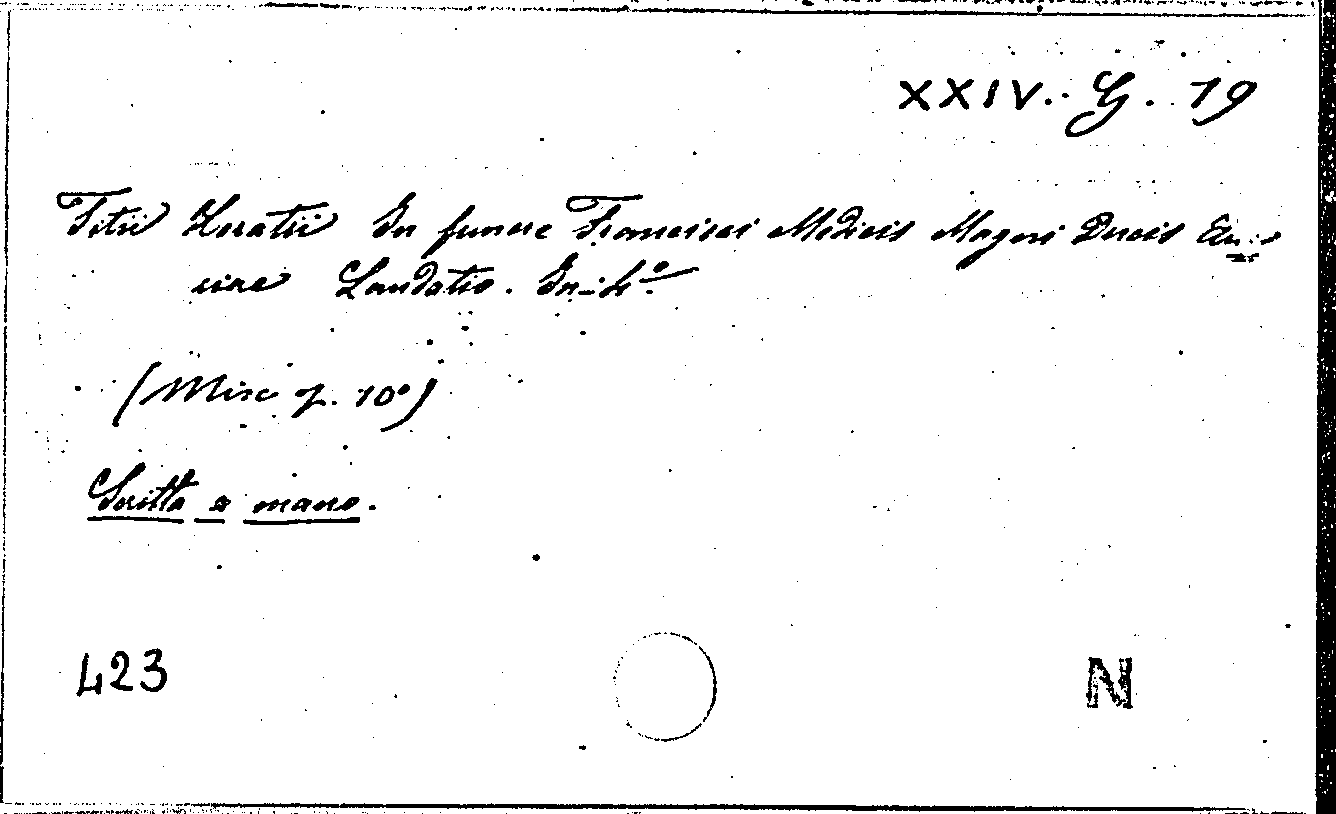 XXIV. G. 19
Titii Horatii In funere Francisci Medicis Magni Ducis
ciae Laudatio. In-4°.
(Misc p. 10°)
Scritta a mano.
423
N